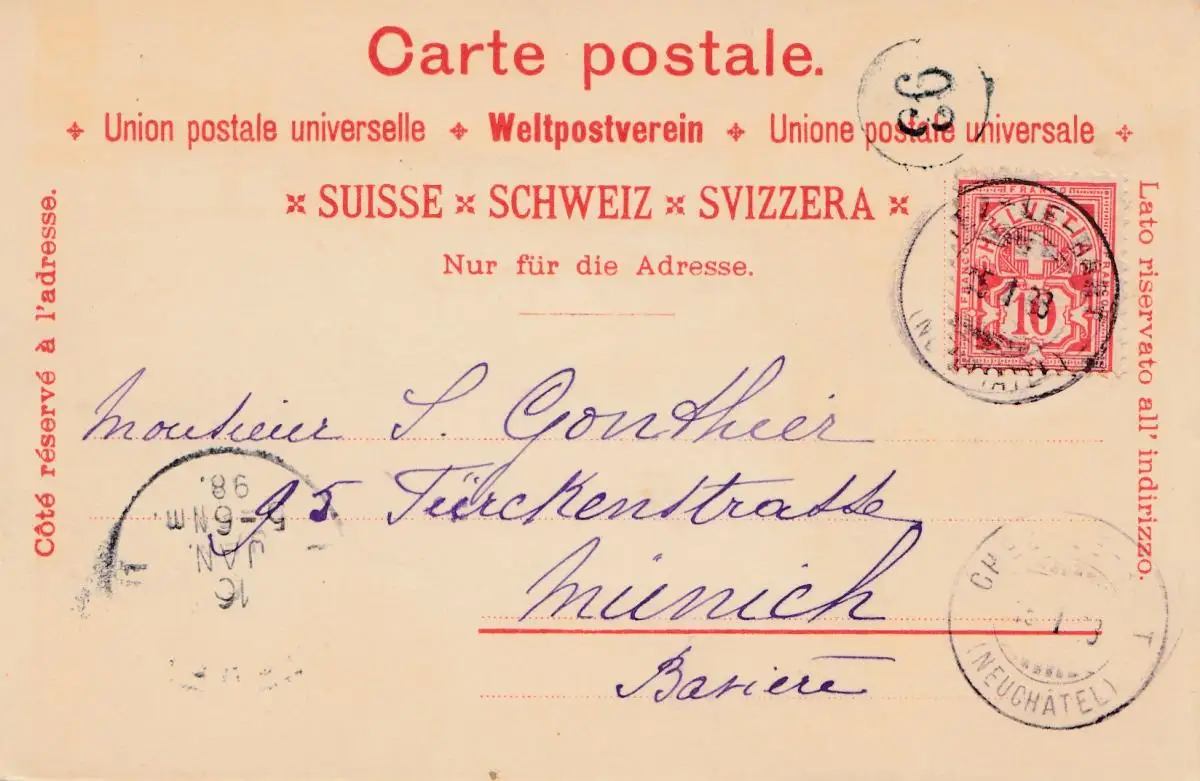 Carte postale.
Union postale universelle Weltpostverein Unione postale universale
SUISSE SCHWEIZ SVIZZERA
Nur für die Adresse.
Côté réservé à l'adresse.
Lato riservato all' indirizzo.
93
FRANCO
HELVETIA
FRANCO
FRANCO
10
Monsieur S. Gonthier
95 Türckenstrasse
Münich
Bavière
16
JAN.
5-6 Nm.
98.
(NEUCHÂTEL)